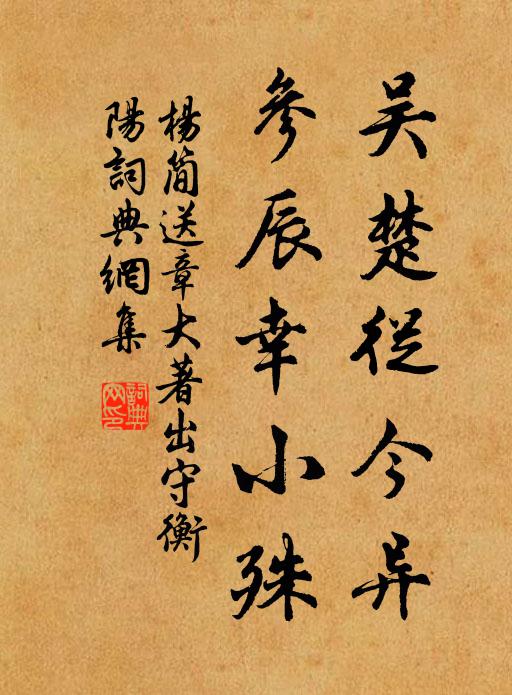 吴楚從今异
參辰幸小殊
楊简送章大著出守衡
陽詞典網集
詞典網印